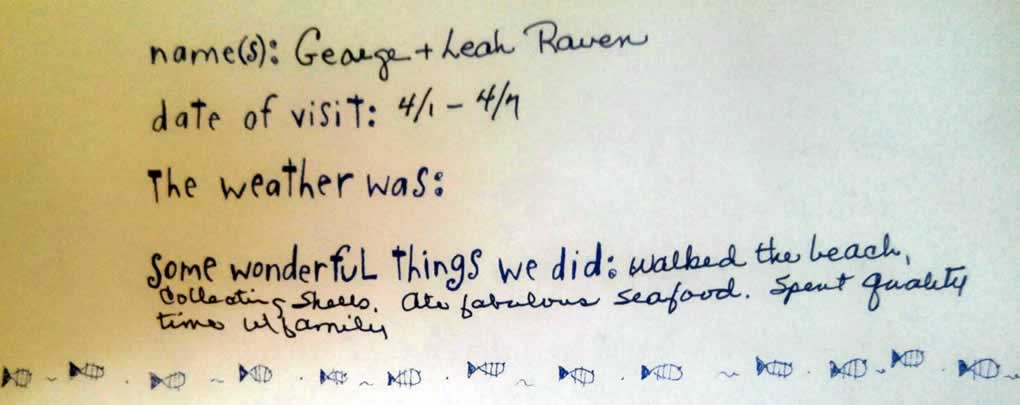 name(s): George + Leah Raven
date of visit: 4/1 - 4/7
The weather was:
Some wonderful things we did: walked the beach,
Collecting Shells. Ate fabulous seafood. Spent quality
time w/family